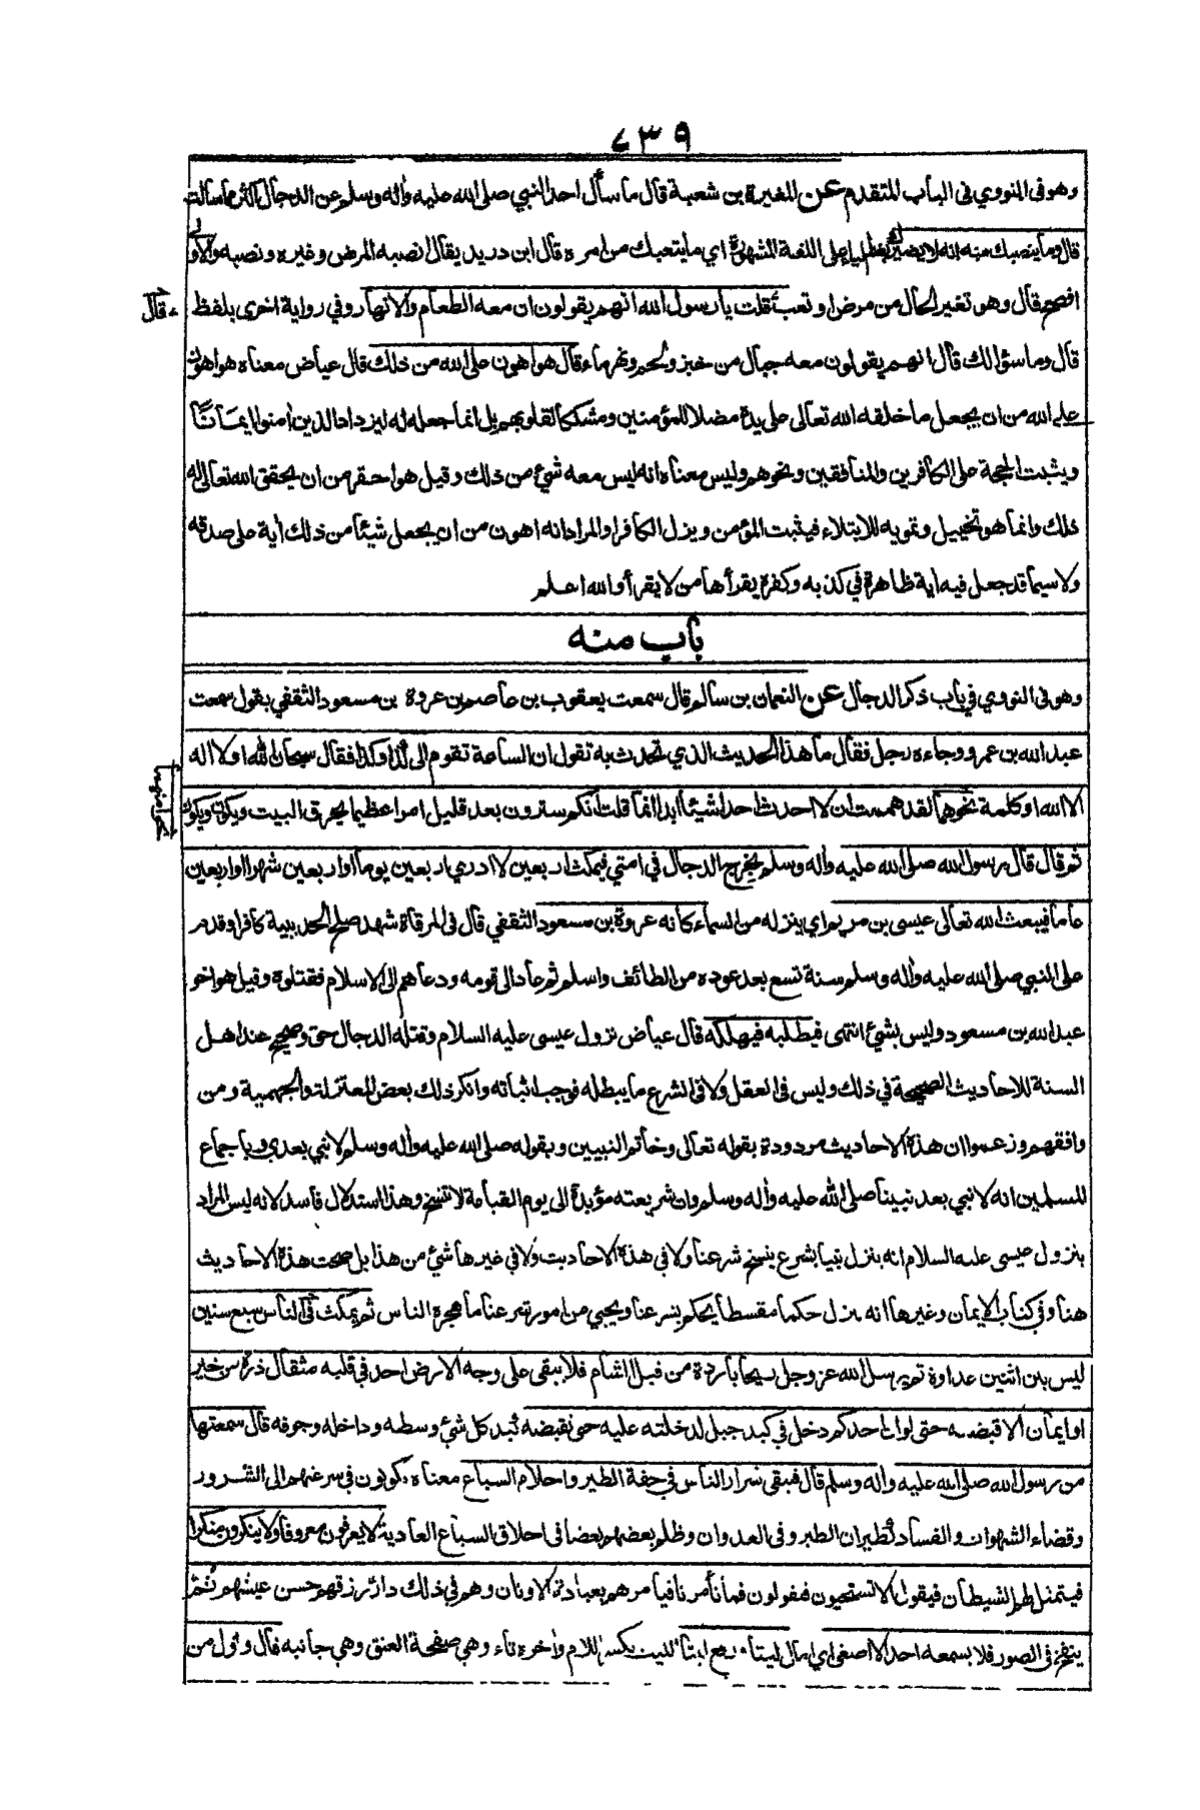 ٧٣٩
وهو في النووي في الباب المتقدم عن المغيرة بن شعبة قال ما سأل احد النبي صلى الله عليه وآله وسلم عن الدجال اكثر ما سألت
قال وما ينصبك منه انه لا يضرك بضم الياء على اللغة المشهورة اي ما يتعبك من امره قال ابن دريد يقال انصبه المرض وغيره ونصبه والاول
افصح قال وهو تغير الحال من مرض او تعب قلت يا رسول الله انهم يقولون ان معه الطعام والانهار وفي رواية اخرى بلفظ
قال
قال وما سؤالك قال انهم يقولون معه جبال من خبز ولحم ونهر ماء قال هو اهون على الله من ذلك قال عياض معناه هو اهون
على الله من ان يجعل ما خلقه الله تعالى على يده مضلا للمؤمنين ومشككا لقلوبهم بل انما جعله له ليزداد الذين امنوا ايمانا
ويثبت الحجة على الكافرين والمنافقين ونحوهم وليس معناه انه ليس معه شيء من ذلك وقيل هو احقر من ان يحقق الله تعالى له
ذلك وانما هو تخييل وتمويه للابتلاء فيثبت المؤمن ويزل الكافر او المراد انه اهون من ان يجعل شيئا من ذلك أية على صدقه
ولا سيما قد جعل فيه اية ظاهرة في كذبه وكفره يقرأها من لا يقرأ والله اعلم
باب منه
وهو في النووي في باب ذكر الدجال عن النعمان بن سالم قال سمعت يعقوب بن عاصم بن عروة بن مسعود الثقفي يقول سمعت
عبد الله بن عمرو وجاءه رجل فقال ما هذا الحديث الذي تحدث به تقول ان الساعة تقوم الى كذا وكذا فقال سبحان الله او لا اله
الا الله او كلمة نحوهما لقد هممت ان لا احدث احدا شيئا ابدا انما قلت انكم سترون بعد قليل امرا عظيما يحرق البيت ويكون ويكون
ثم قال قال رسول الله صلى الله عليه وآله وسلم يخرج الدجال في امتي فيمكث اربعين لا ادري اربعين يوما او اربعين شهرا او اربعين
عاما فيبعث الله تعالى عيسى بن مريم اي ينزله من السماء كأنه عروة بن مسعود الثقفي قال في المرقاة شهد صلح الحديبية كافرا وقدم
على النبي صلى الله عليه وآله وسلم سنة تسع بعد عوده من الطائف واسلم ثم عاد الى قومه ودعاهم الى الاسلام فقتلوه وقيل هو اخو
عبد الله بن مسعود وليس بشيء انتهى فيطلبه فيهلكه قال عياض نزول عيسى عليه السلام وقتله الدجال حق وصحيح عند اهل
السنة للاحاديث الصحيحة في ذلك وليس في العقل ولا في الشرع ما يبطله فوجب اثباته وانكر ذلك بعض المعتزلة والجهمية ومن
وافقهم وزعموا ان هذه الاحاديث مردودة بقوله تعالى وخاتم النبيين وبقوله صلى الله عليه وآله وسلم لا نبي بعدي وباجماع
المسلمين انه لا نبي بعد نبينا صلى الله عليه وآله وسلم وان شريعته مؤبدة الى يوم القيامة لا تنسخ وهذا استدلال فاسد لانه ليس المراد
بنزول عيسى عليه السلام انه ينزل نبيا بشرع ينسخ شرعنا ولا في هذه الاحاديث ولا في غيرها شيء من هذا بل صحت هذه الاحاديث
هنا وفي كتاب الايمان وغيرها انه ينزل حكما مقسطا يحكم بشرعنا ويحيي من امور شرعنا ما هجره الناس ثم يمكث في الناس سبع سنين
ليس بين اثنين عداوة ثم يرسل الله عز وجل ريحا باردة من قبل الشام فلا يبقى على وجه الارض احد في قلبه مثقال ذرة من خير
او ايمان الا قبضته حتى لو ان احدكم دخل في كبد جبل لدخلته عليه حتى تقبضه كبد كل شيء وسطه وداخله وجوفه قال سمعتها
من رسول الله صلى الله عليه وآله وسلم قال فيبقى شرار الناس في خفة الطير واحلام السباع معناه يكونون في سرعتهم الى الشرور
وقضاء الشهوات والفساد كطيران الطير وفي العدوان وظلم بعضهم بعضا في اخلاق السباع العادية لا يعرفون معروفا ولا ينكرون منكرا
فيتمثل لهم الشيطان فيقول الا تستحيون فيقولون فما تأمرنا فيأمرهم بعبادة الاوثان وهم في ذلك دار رزقهم حسن عيشهم ثم
ينفخ في الصور فلا يسمعه احد الا اصغى اي امال ليتا ورفع ليتا الليت بكسر اللام وأخره تاء وهي صفحة العنق وهي جانبه قال واول من